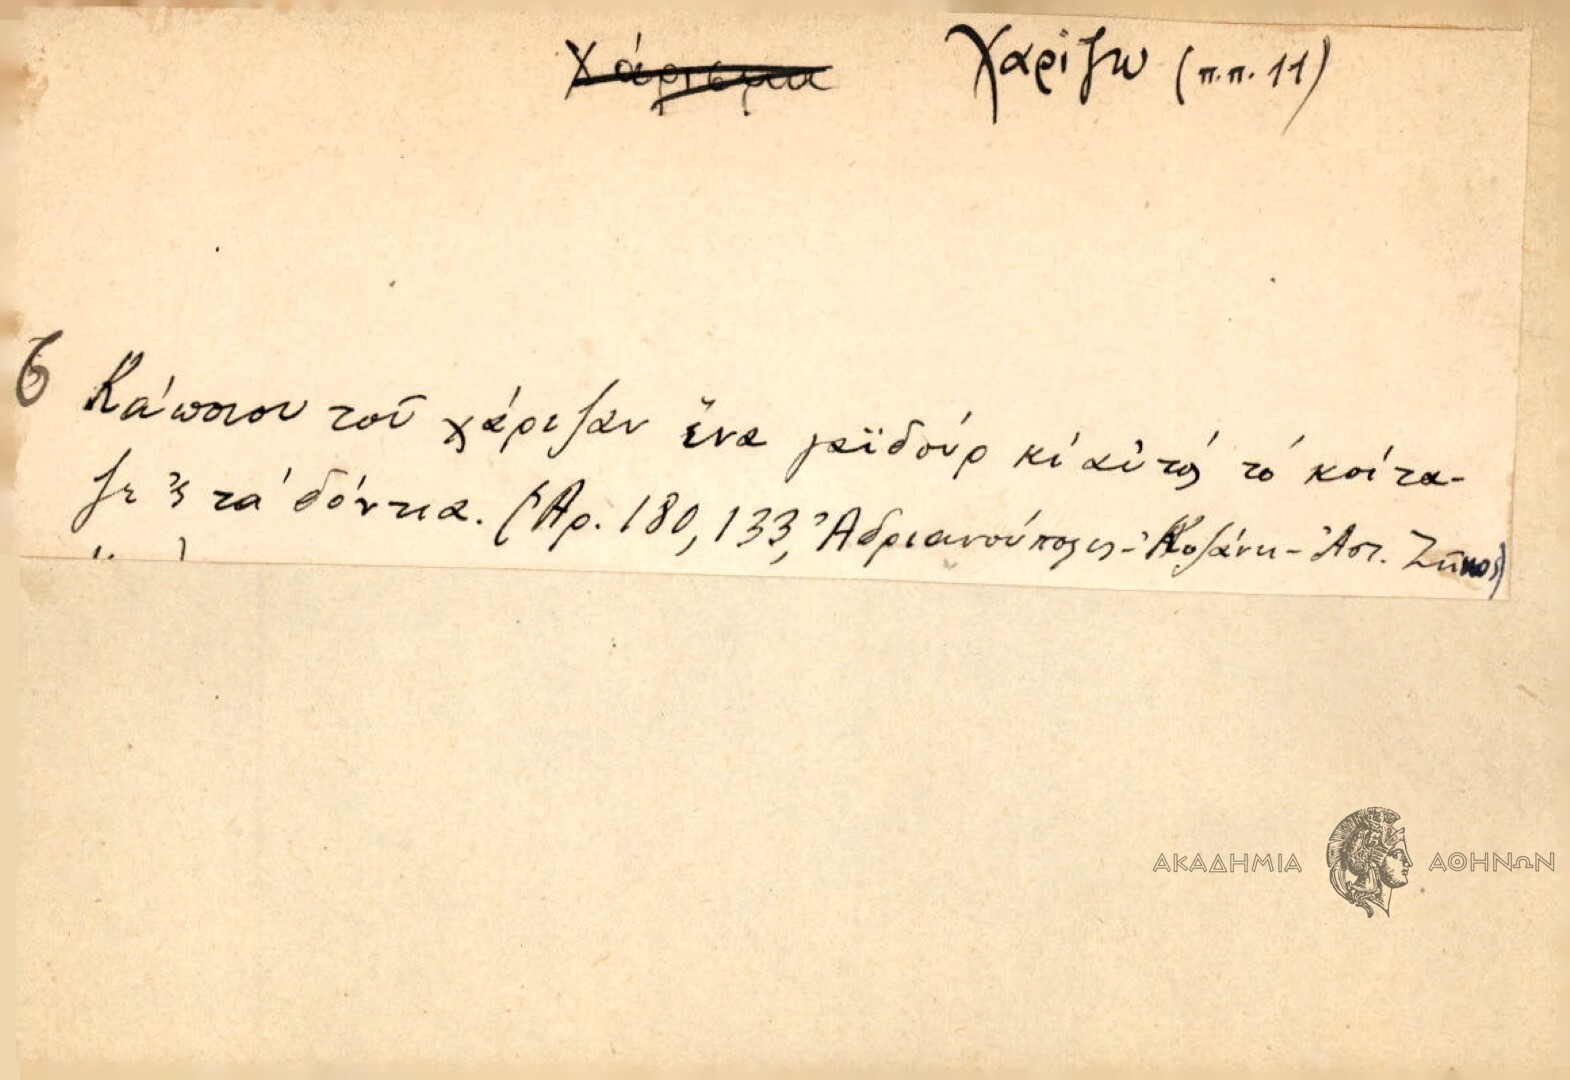 Χάρισμα Χαρίζω (π.π. 11)
6 Κάποιου τοῦ χάριζαν ἕνα γαϊδούρ κι' αὐτὸς τὸ κοίτα-
ζε 'ς τὰ δόντια. (Ἀρ. 180, 133, Ἀδριανούπολις - Κοζάνη - Ἀστ. Ζῆκος)
ΑΚΑΔΗΜΙΑ ΑΘΗΝΩΝ